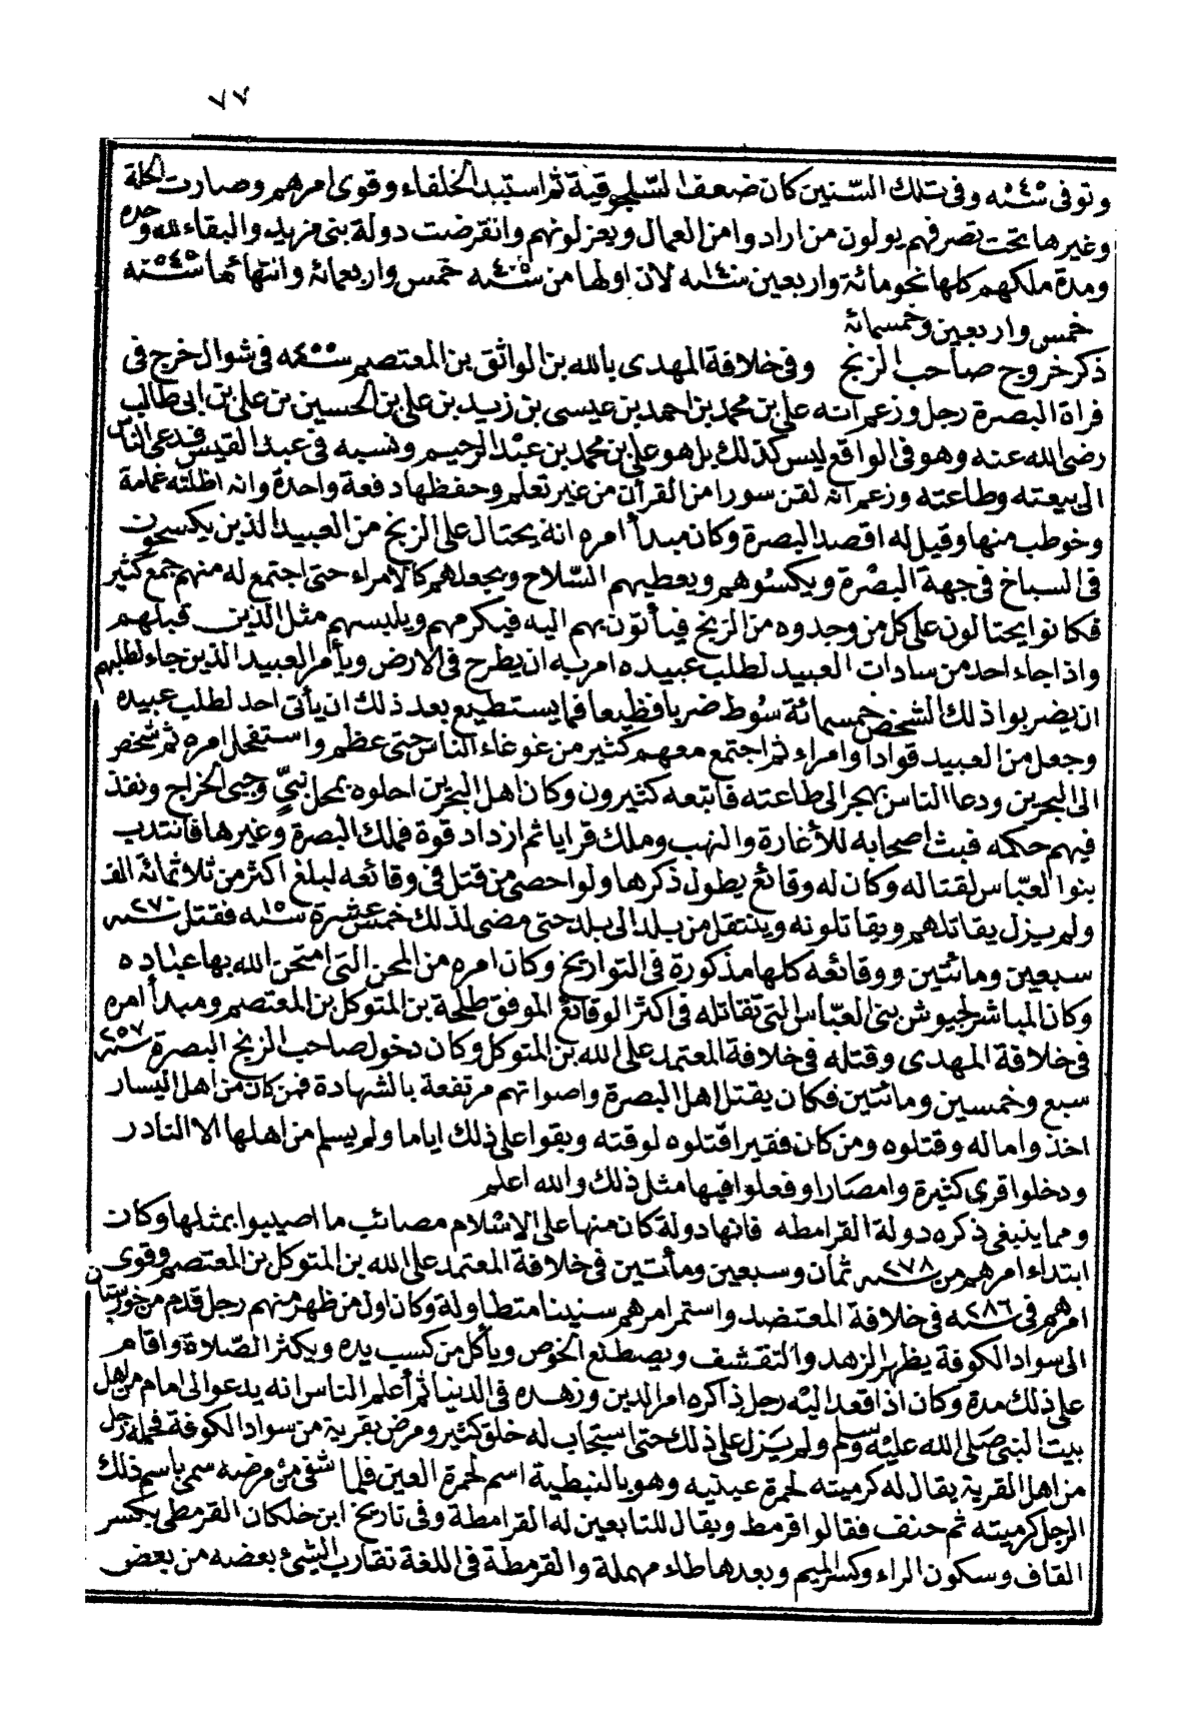 ٧٧
وتوفى سنة ٥٤٠ وفى تلك السّنين كان ضعف السّلجوقية ثم استبد الخلفاء وقوى امرهم وصارت الحلة
وغيرها تحت تصرفهم يولون من ارادوا من العمال ويعزلونهم وانقرضت دولة بنى مزيد والبقاء لله وحده
ومدة ملكهم كلها نحو مائة واربعين سنة ١٤٠ لان اولها من سنة ٤٠٥ خمس واربعمائة وانتهائها سنة ٥٤٥
خمس واربعين وخمسمائة
ذكر خروج صاحب الزنج وفى خلافة المهدى بالله بن الواثق بن المعتصم سنة فى شوال خرج فى
فراة البصرة رجل وزعم انه على بن محمد بن احمد بن عيسى بن زيد بن على بن الحسين بن على بن ابى طالب
رضى الله عنه وهو فى الواقع ليس كذلك بل هو على بن محمد بن عبد الرحيم ونسبه فى عبد القيس فدعى الناس
الى بيعته وطاعته وزعم انه لقن سورا من القرآن من غير تعلم وحفظها دفعة واحدة وانه اظلته غمامة
وخوطب منها وقيل له اقصد البصرة وكان مبدأ امره انه يحتال على الزنج من العبيد الذين يكسحون
فى السباخ فى جهة البصرة ويكسوهم ويعطيهم السّلاح ويجعلهم كالامراء حتى اجتمع له منهم جمع كثير
فكانوا يحتالون على كل من وجدوه من الزنج فيأتون بهم اليه فيكرمهم ويلبسهم مثل الذين قبلهم
واذا جاء احد من سادات العبيد لطلب عبيده امر به ان يطرح فى الارض ويأمر العبيد الذين جاء لطلبهم
ان يضربوا ذلك الشخص خمسمائة سوط ضربا فظيعا فما يستطيع بعد ذلك ان يأتى احد لطلب عبيده
وجعل من العبيد قوادا وامراء ثم اجتمع معهم كثير من غوغاء الناس حتى عظم واستفحل امره ثم شخص
الى البحرين ودعا الناس بهجر الى طاعته فاتبعه كثيرون وكان اهل البحرين احلوه بمحل نبىٍّ وجبى الخراج ونفذ
فيهم حكمه فبث اصحابه للأغارة والنهب وملك قرايا ثم ازداد قوة فملك البصرة وغيرها فانتدب
بنوا العبّاس لقتاله وكان له وقائع يطول ذكرها ولو احصى من قتل فى وقائعه لبلغ اكثر من ثلاثمائة الف
ولم يزل يقاتلهم ويقاتلونه وينتقل من بلد الى بلد حتى مضى لذلك خمس عشرة سنة ١٥ فقتل سنة ٢٧٠
سبعين ومائتين ووقائعه كلها مذكورة فى التواريخ وكان امره من المحن التى امتحن الله بها عباده
وكان المباشر لجيوش بنى العبّاس التى تقاتله فى اكثر الوقائع الموفق طلحة بن المتوكل بن المعتصم ومبدأ امره
فى خلافة المهدى وقتله فى خلافة المعتمد على الله بن المتوكل وكان دخول صاحب الزنج البصرة سنة ٢٥٧
سبع وخمسين ومائتين فكان يقتل اهل البصرة واصواتهم مرتفعة بالشهادة فمن كان من اهل اليسار
اخذوا ماله وقتلوه ومن كان فقيرا قتلوه لوقته وبقوا على ذلك اياما ولم يسلم من اهلها الا النادر
ودخلوا قرى كثيرة وامصارا وفعلوا فيها مثل ذلك والله اعلم
ومما ينبغى ذكره دولة القرامطه فانها دولة كان منها على الاسْلام مصائب ما اصيبوا بمثلها وكان
ابتداء امرهم من سنة ٢٧٨ ثمان وسبعين ومأتين فى خلافة المعتمد على الله بن المتوكل بن المعتصم وقوى
امرهم فى سنة ٢٨٦ فى خلافة المعتضد واستمر امرهم سنينا متطاولة وكان اول من ظهر منهم رجل قدم من خورستان
الى سواد الكوفة يظهر الزهد والتقشف ويصطنع الخوص ويأكل من كسب يده ويكثر الصّلاة واقام
على ذلك مدة وكان اذا قعد اليْه رجل ذاكره امر الدين وزهده فى الدنيا ثم أعلم الناس انه يدعو الى امام من اهل
بيت النبى صلى الله عليْه وسلم ولم يَزل على ذلك حتى استجاب له خلق كثير ومرض بقرية من سواد الكوفة فحمله رجل
من اهل القرية يقال له كرميته لحمرة عينيه وهو بالنبطية اسم لحمرة العين فلما شفى من مرضه سمى باسم ذلك
الرجل كرميته ثم حنف فقالوا قرمط ويقال للتابعين له القرامطة وفى تاريخ ابن خلكان القرمطى بكسر
القاف وسكون الراء وكسر الميم وبعدها طاء مهملة والقرمطة فى اللغة تقارب الشيئ بعضه من بعض